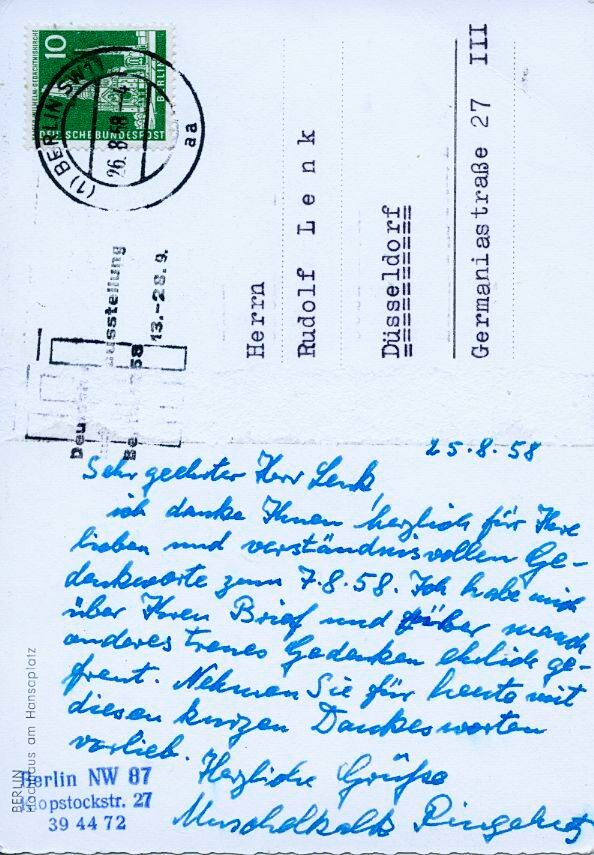 10
DEUTSCHE BUNDESPOST
BERLIN
(1) BERLIN SW11
26.8.58
aa
Ausstellung
13.-28.9.
Herrn
Rudolf Lenk
Düsseldorf
==========
Germaniastraße 27 III
25.8.58
Sehr geehrter Herr Lenk,
ich danke Ihnen herzlich für Ihre
lieben und verständnisvollen Ge-
denkworte zum 7.8.58. Ich habe mich
über Ihren Brief und über manch
anderes treues Gedenken ehrlich ge-
freut. Nehmen Sie für heute mit
diesen kurzen Dankesworten
vorlieb.
Herzliche Grüße
Muschelkalk Ringelnatz
Berlin NW 87
Klopstockstr. 27
39 44 72
BERLIN
Hochhaus am Hansaplatz